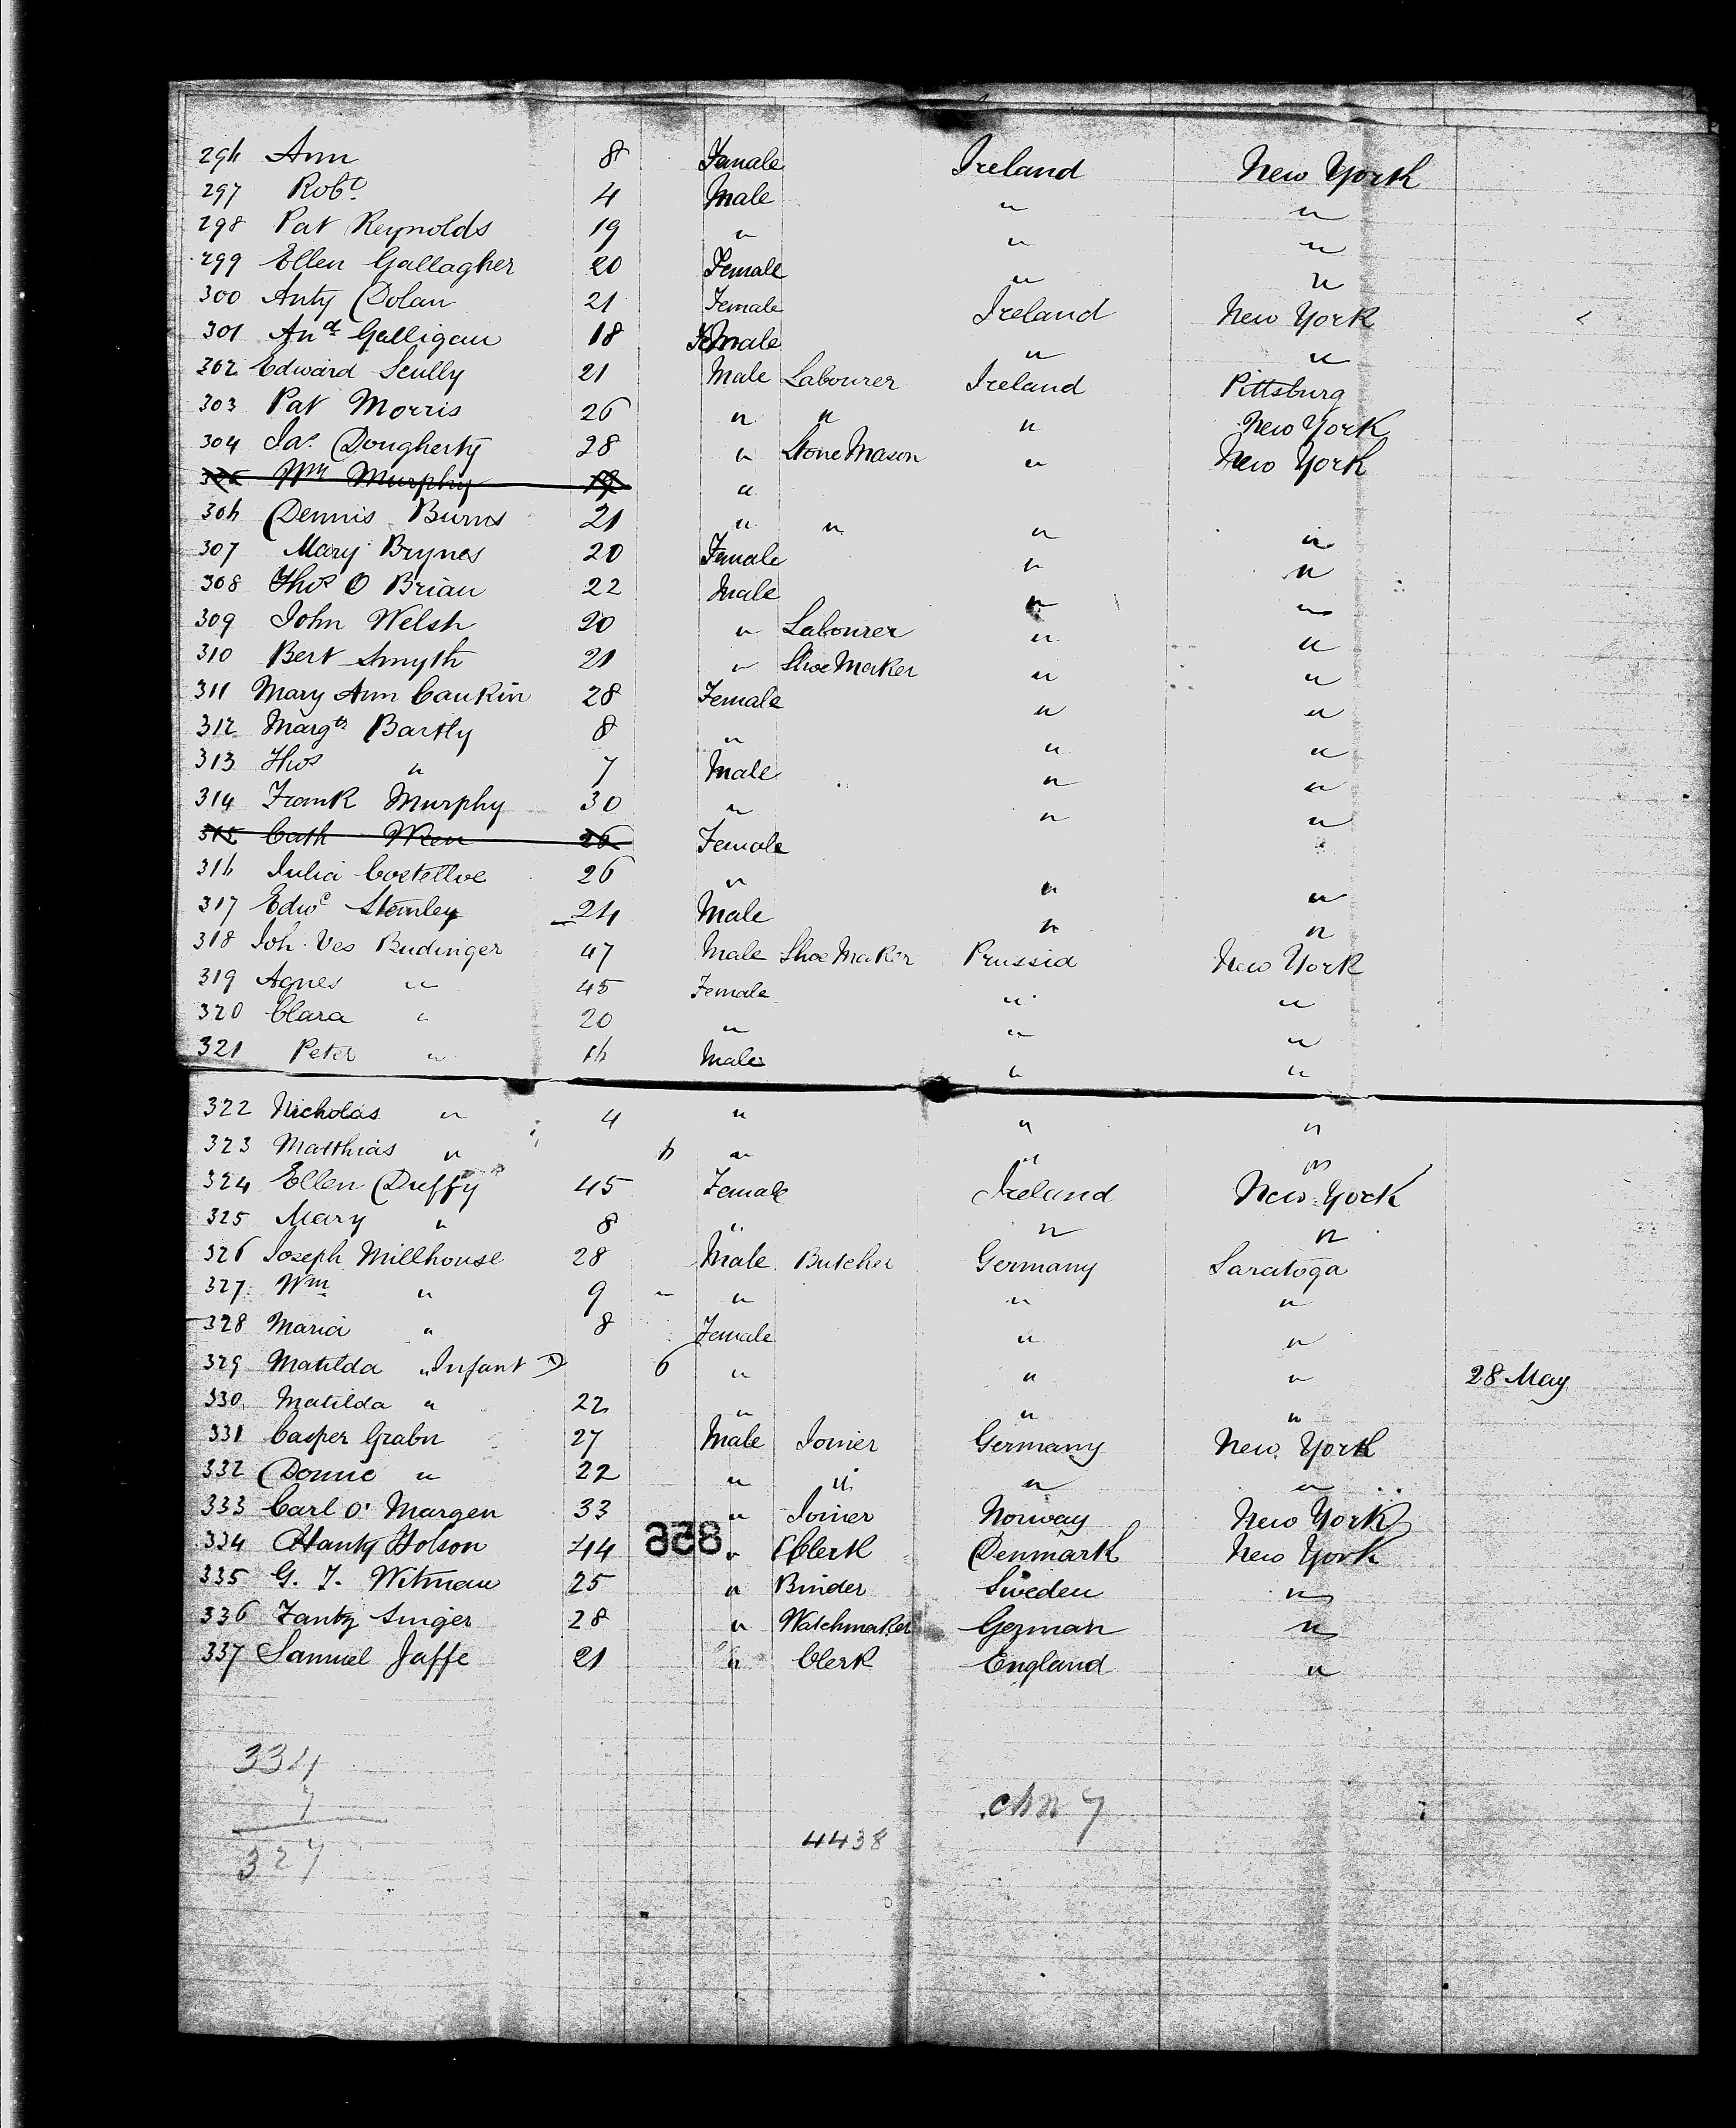 296 Ann 8 Female Ireland New York
297 Robt. 4 Male " " "
298 Pat Reynolds 19 " " "
299 Ellen Gallagher 20 Female " "
300 Anty Dolan 21 Female Ireland New York
301 And Galligan 18 Female " "
302 Edward Scully 21 Male Labourer Ireland Pittsburg
303 Pat Morris 26 " " " New York
304 Jas. Dougherty 28 " Stone Mason " New York
305 Wm Murphy "
306 Dennis Burns 21 " " " "
307 Mary Brynes 20 Female " "
308 Thos O Brian 22 Male " "
309 John Welsh 20 " Labourer " "
310 Bert Smyth 21 " Shoe Maker " "
311 Mary Ann Caukin 28 Female " "
312 Margt Bartly 8 " " "
313 Thos " 7 Male " "
314 Frank Murphy 30 " " "
315 Cath 26 Female
316 Julia Costelloe 26 " " "
317 Edwd Stemley 24 Male " "
318 Joh. Ves Budinger 47 Male Shoe Maker Prussia New York
319 Agnes " 45 Female " "
320 Clara " 20 " " "
321 Peter " 16 Male " "
322 Nicholas " 4 " " "
323 Matthias " 6 " " "
324 Ellen Duffy 45 Female Ireland New York
325 Mary " 8 " " "
326 Joseph Millhouse 28 Male Butcher Germany Saratoga
327 Wm " 9 " " "
328 Maria " 8 Female " "
329 Matilda " Infant 6 " " " 28 May
330 Matilda " 22 " " "
331 Casper Grabn 27 Male Joiner Germany New York
332 Donne " 22 " " " "
333 Carl O' Margen 33 " Joiner Norway New York
334 Hanty Holson 44 " Clerk Denmark New York
856
335 G. J. Witman 25 " Binder Sweden "
336 Fantz Singer 28 " Watchmaker German "
337 Samuel Jaffe 21 " Clerk England "
334
7
327
4438